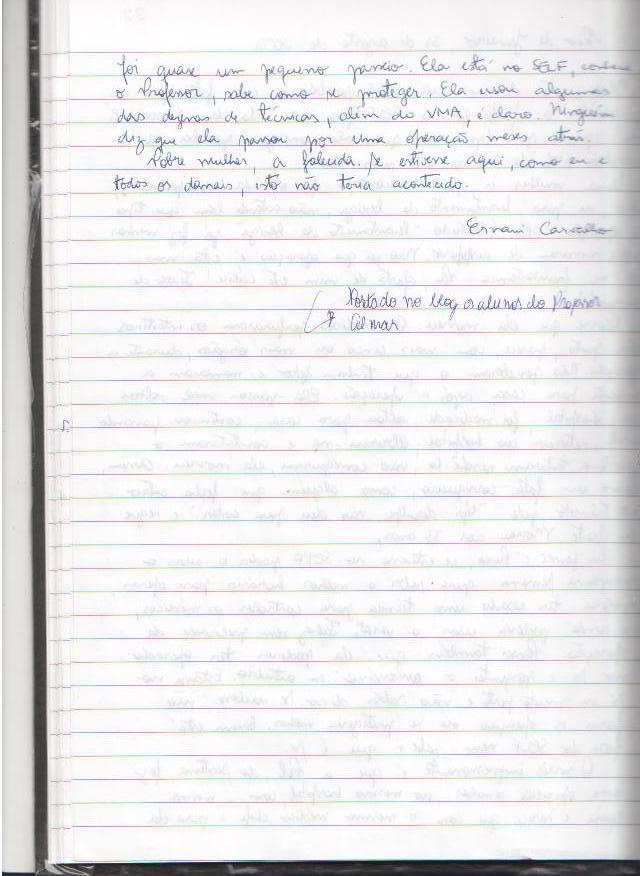 foi quase um pequeno passeio. Ela está no SELF, conhece
o Professor, sabe como se proteger. Ela usou algumas
das dezenas de técnicas, além do VMA, é claro. Ninguém
diz que ela passou por uma operação meses atrás.
Pobre mulher, a falecida. Se estivesse aqui, como eu e
todos os demais, isto não teria acontecido.
Ernani
Postado no blog os alunos do Professor